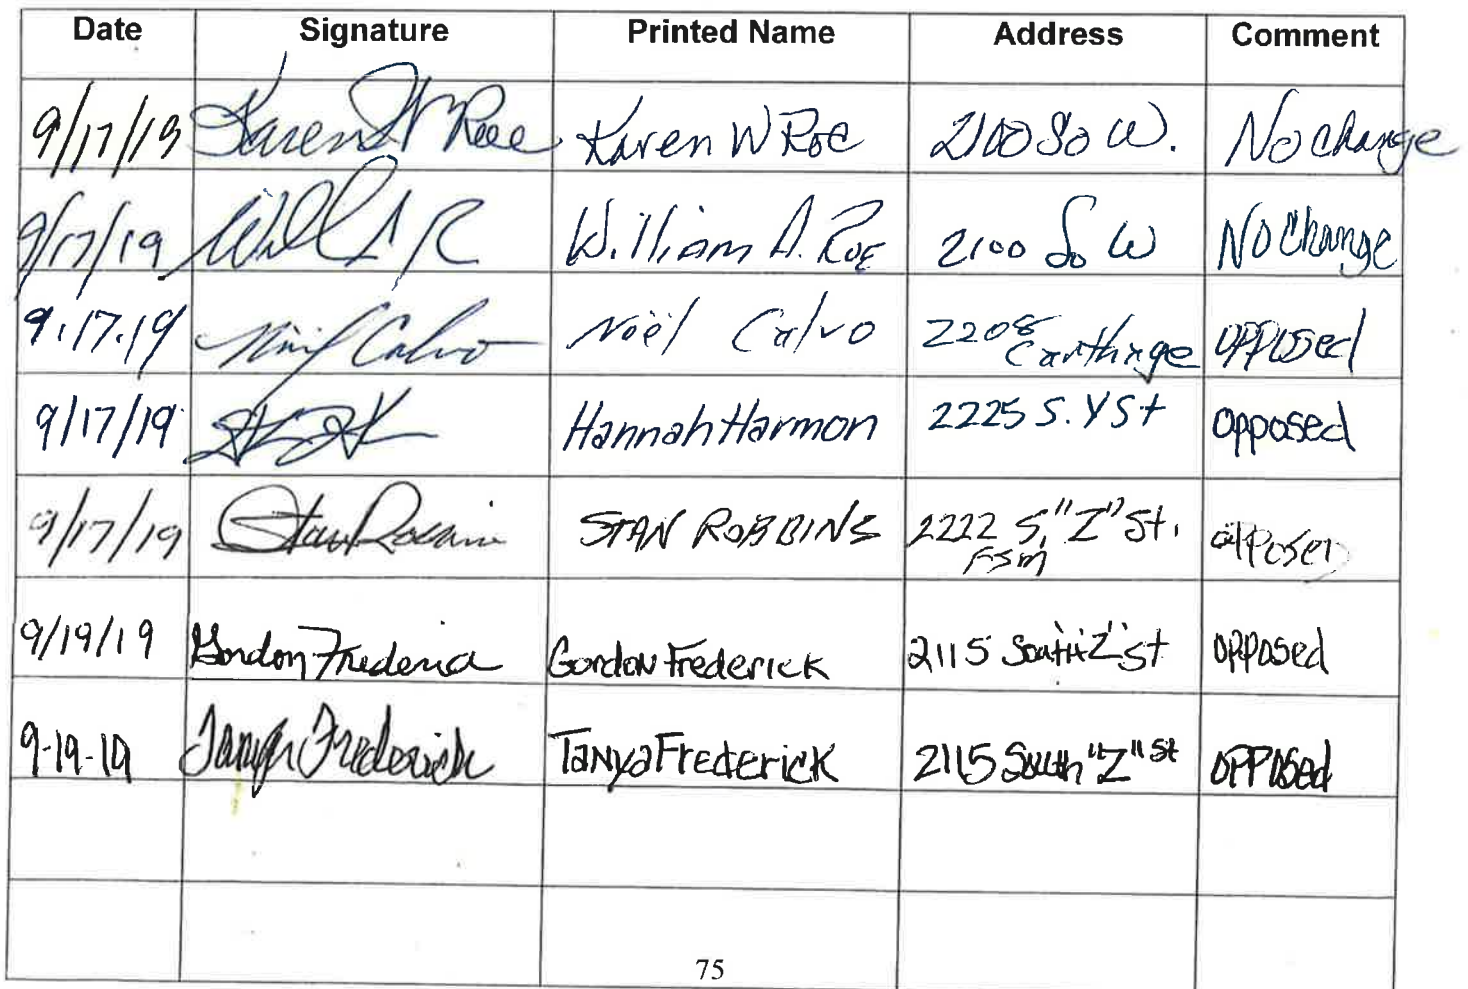 Date Signature Printed Name Address Comment
9/17/19 Karen W Roe Karen W Roe 2100 So W. No change
9/17/19 William A. Roe 2100 So W No Change
9.17.19 Noël Calvo Noël Calvo 2208 Carthage opposed
9/17/19 Hannah Harmon 2225 S. Y St opposed
9/17/19 Stan Robbins STAN ROBBINS 2222 S. "Z" St. opposed
FSM
9/19/19 Gordon Frederick Gordon Frederick 2115 South "Z" St opposed
9-19-19 Tanya Frederick Tanya Frederick 2115 South "Z" St opposed
75